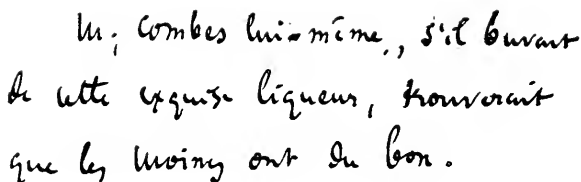 M. Combes lui-même, s'il buvait
de cette exquise liqueur, trouverait
que les moines ont du bon.